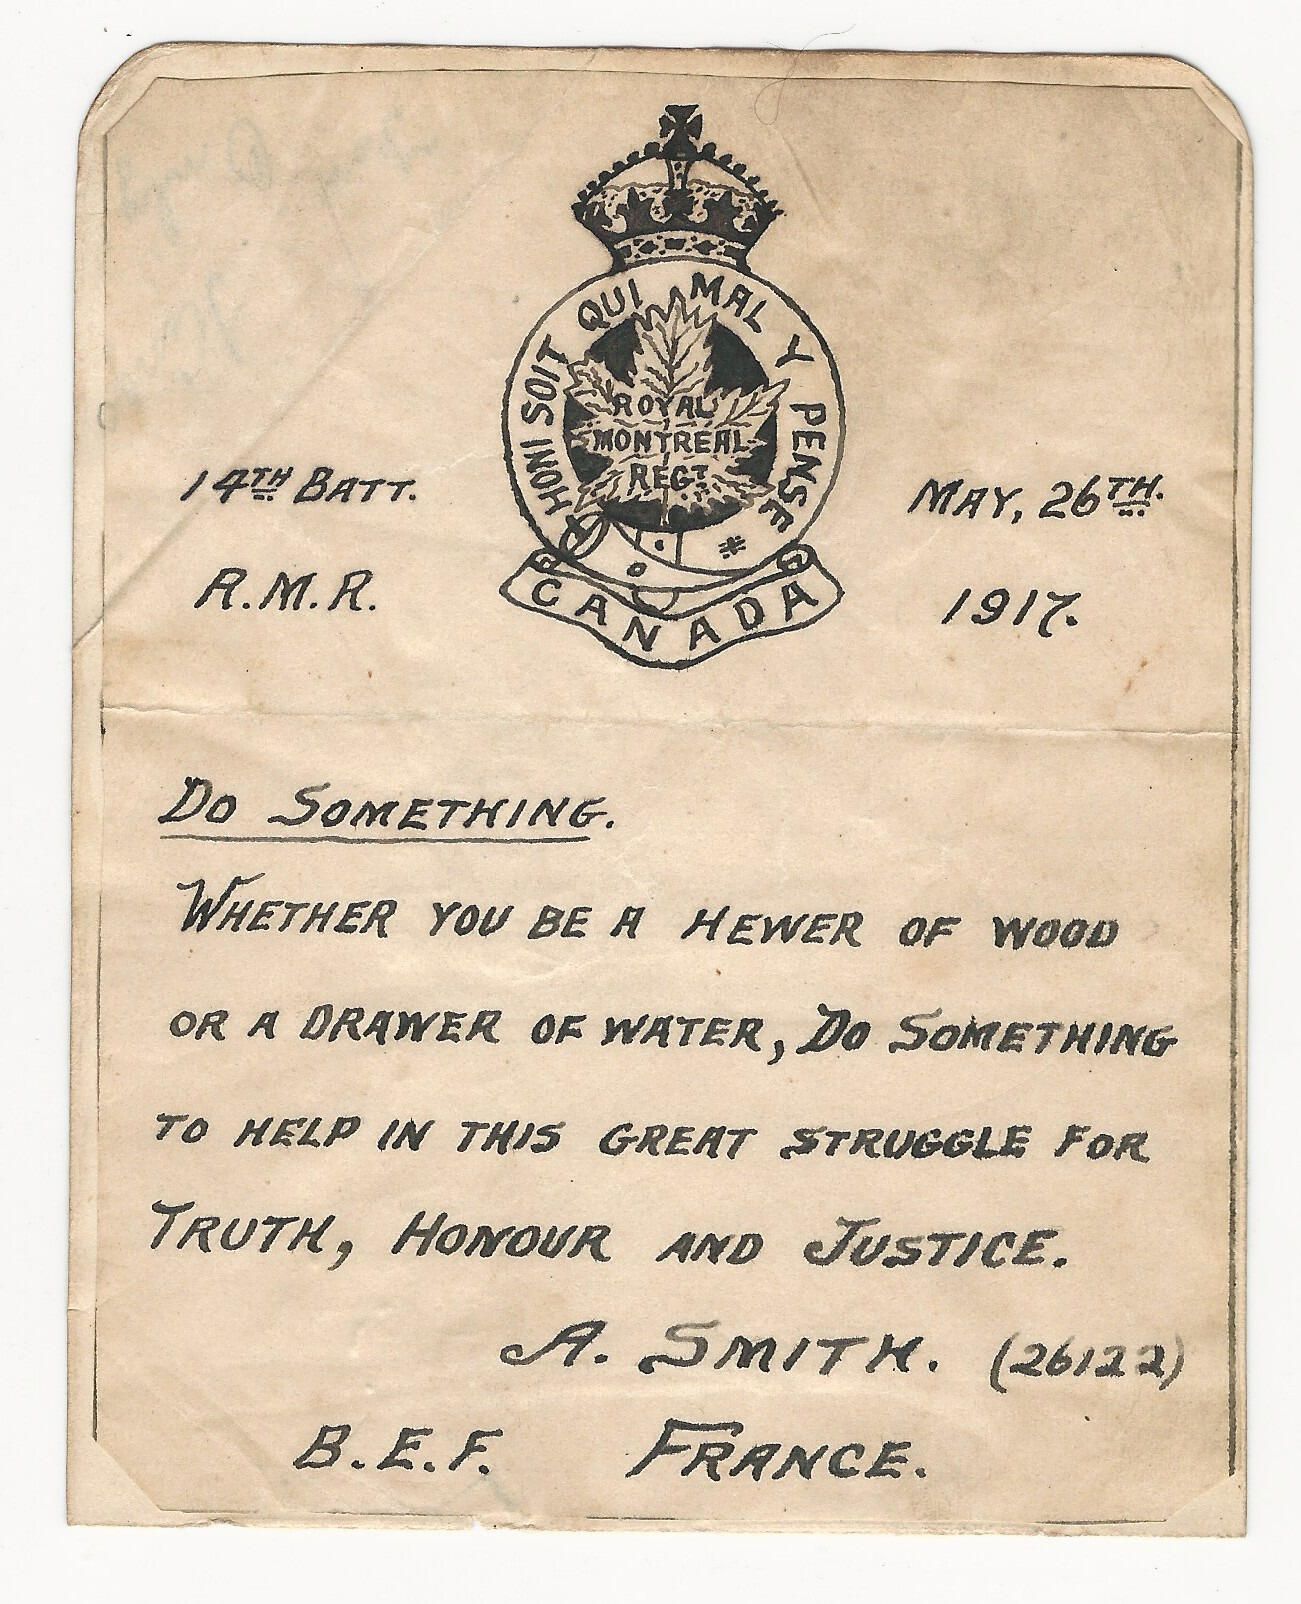 HONI SOIT QUI MAL Y PENSE
ROYAL
MONTREAL
REGT
CANADA
14TH BATT.
R.M.R.
MAY, 26TH.
1917.
DO SOMETHING.
WHETHER YOU BE A HEWER OF WOOD
OR A DRAWER OF WATER, DO SOMETHING
TO HELP IN THIS GREAT STRUGGLE FOR
TRUTH, HONOUR AND JUSTICE.
A. SMITH. (26122)
B.E.F. FRANCE.